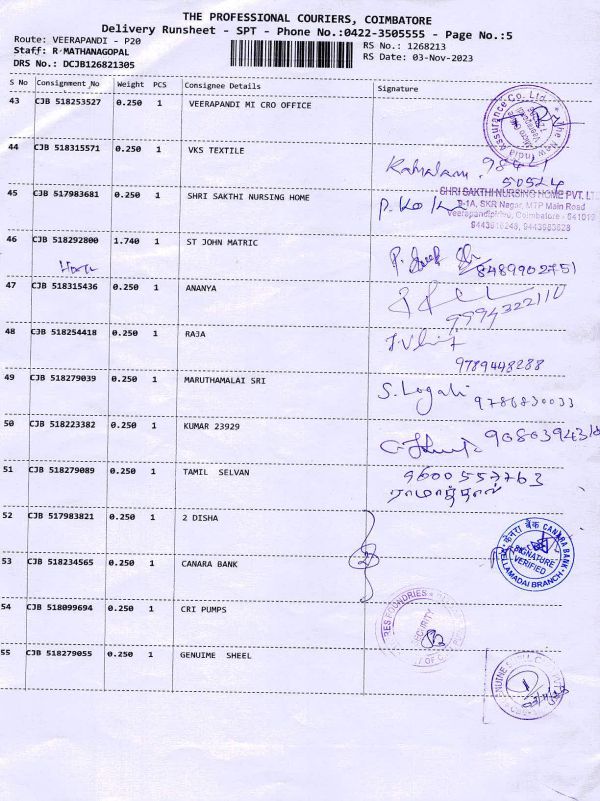 THE PROFESSIONAL COURIERS, COIMBATORE
Delivery Runsheet - SPT - Phone No.:0422-3505555 - Page No.:5
Route: VEERAPANDI - P20
RS No.: 1268213
Staff: R MATHANAGOPAL
RS Date: 03-Nov-2023
DRS No.: DCJB126821305
S No Consignment No Weight PCS Consignee Details Signature
43 CJB 518253527 0.250 1 VEERAPANDI MI CRO OFFICE
The New India Assurance Co. Ltd.
44 CJB 518315571 0.250 1 VKS TEXTILE
Kamalam 98421
50524
45 CJB 517983681 0.250 1 SHRI SAKTHI NURSING HOME
SHRI SAKTHI NURSING HOME PVT. LT
SKR Nagar, MTP Main Road
Coimbatore - 641019
46 CJB 518292800 1.740 1 ST JOHN MATRIC
8489902751
47 CJB 518315436 0.250 1 ANANYA
9994322110
48 CJB 518254418 0.250 1 RAJA
9789448288
49 CJB 518279039 0.250 1 MARUTHAMALAI SRI
S. Logali 9786830033
50 CJB 518223382 0.250 1 KUMAR 23929
51 CJB 518279089 0.250 1 TAMIL SELVAN
9600557763
ராமாத்தாள்
52 CJB 517983821 0.250 1 2 DISHA
केनरा बैंक CANARA BANK
SIGNATURE
VERIFIED
53 CJB 518234565 0.250 1 CANARA BANK
54 CJB 518099694 0.250 1 CRI PUMPS
55 CJB 518279055 0.250 1 GENUIME SHEEL